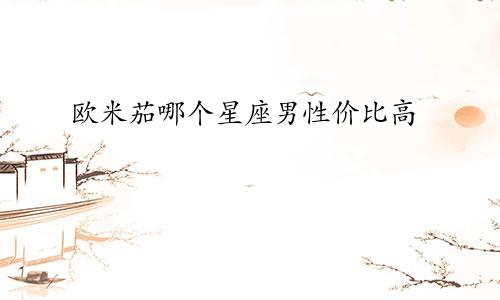 欧米茄哪个星座男性价比高